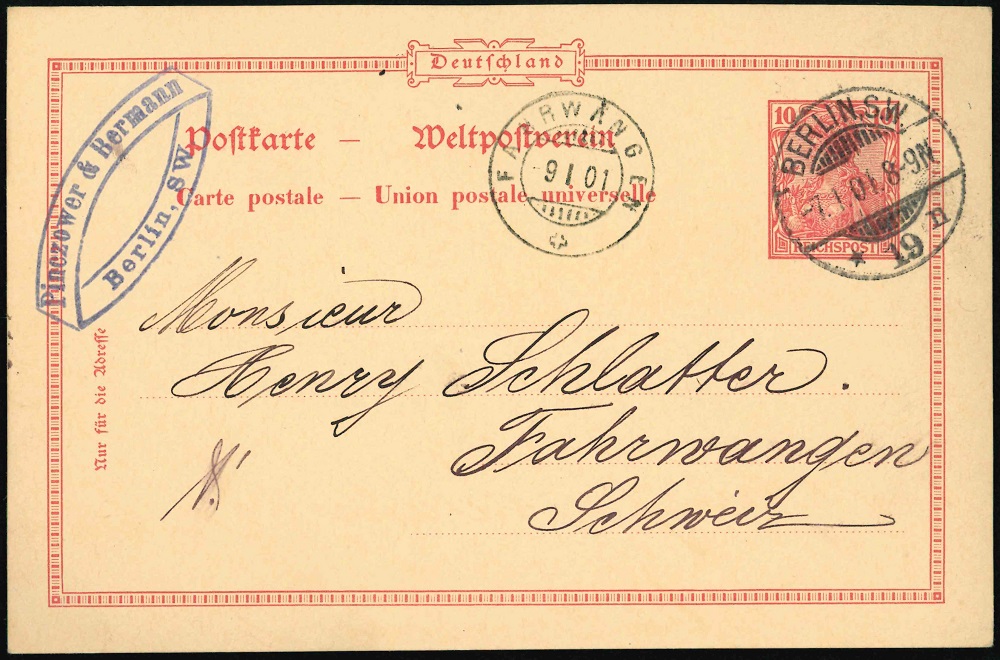 Deutschland
Pinczower & Bermann
Berlin, SW
Postkarte — Weltpostverein
Carte postale — Union postale universelle
FAHRWANGEN
9 I 01
10
REICHSPOST
BERLIN.SW.
1 01 8-9N
* 19 n
Nur für die Adresse
Monsieur
Henry Schlatter.
Fahrwangen
Schweiz